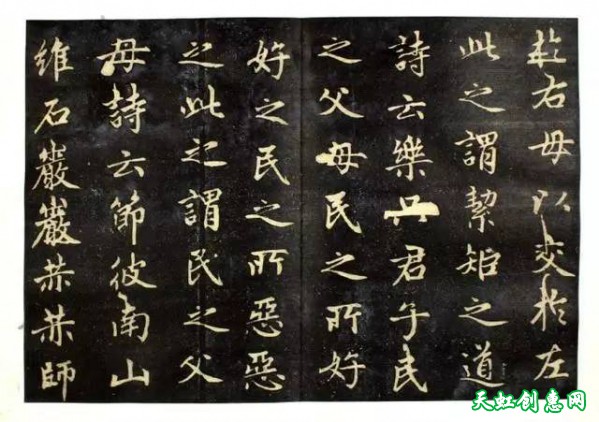 於右毋以交於左
此之謂絜矩之道
詩云樂只君子民
之父母民之所好
好之民之所惡惡
之此之謂民之父
母詩云節彼南山
維石巖巖赫赫師
天虹创惠网